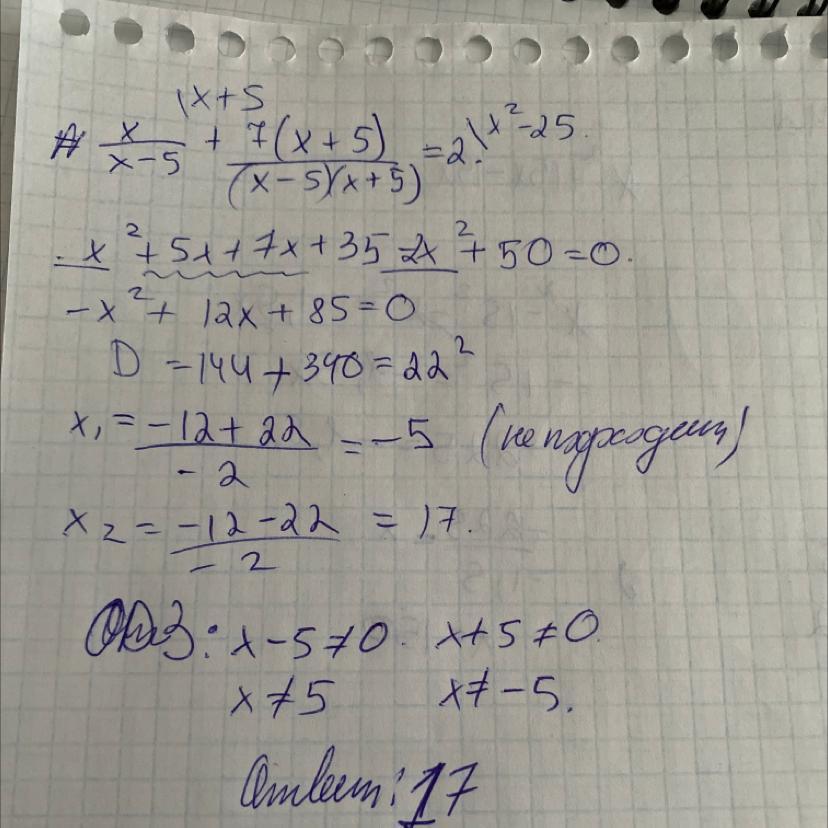 \x+5
x/(x-5) + 7(x+5)/((x-5)(x+5)) = 2. \x²-25.
x²+5x+7x+35-2x²+50=0.
-x²+12x+85=0
D=144+340=22²
x₁=(-12+22)/(-2)=-5 (не подходит)
x₂=(-12-22)/(-2)=17.
ОДЗ: x-5≠0. x+5≠0.
x≠5 x≠-5.
Ответ: 17